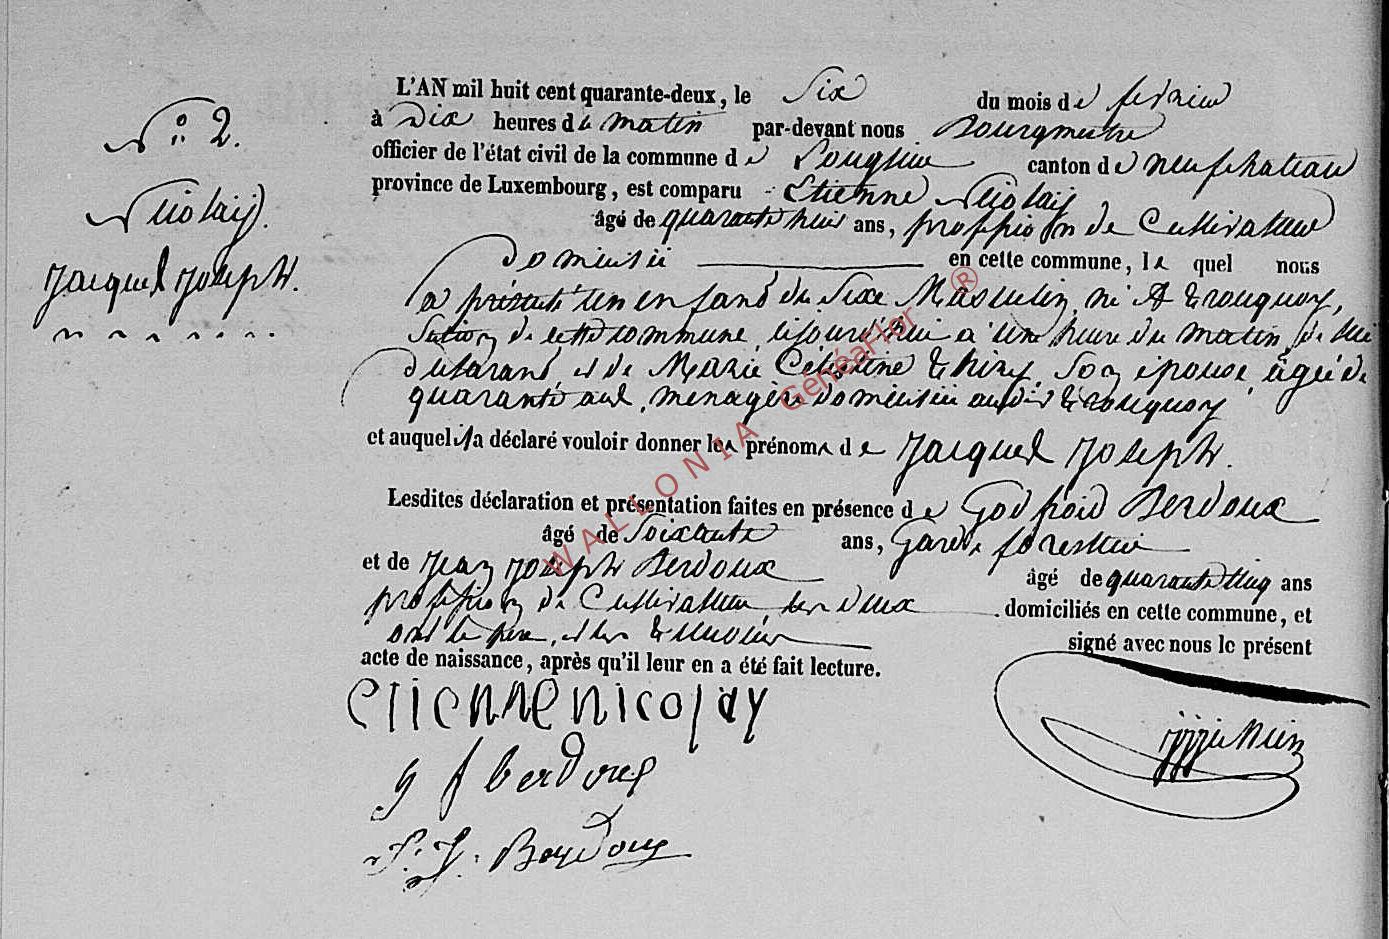 N° 2.
Nicolaij.
Jacques Joseph.
L'AN mil huit cent quarante-deux, le Six du mois de fevrier
à Dix heures du matin par-devant nous Bourgmestre
officier de l'état civil de la commune de Longlier canton de neufchateau
province de Luxembourg, est comparu Etienne Nicolaij
âgé de quarante huit ans, profession de Cultivateur
domicilié en cette commune, le quel nous
a présenté un enfant du Sexe Masculin, né A
de cette commune, cejourd'hui a une heure du matin, de lui
déclarant et de Marie Célestine Thiry, Son épouse, âgée de
quarante ans, menagère domiciliée audit
et auquel il a déclaré vouloir donner les prénoms de Jacques Joseph.
Lesdites déclaration et présentation faites en présence de Godfroid Berdoux
âgé de Soixante ans, Garde forestier
et de Jean Joseph Berdoux âgé de quarante cinq ans
profession de Cultivateur, les deux domiciliés en cette commune, et
ont le père, et les témoins signé avec nous le présent
acte de naissance, après qu'il leur en a été fait lecture.
etienne nicolay
g f berdoux
J. J. Berdoux
WALLONIA GénéaFlor ®